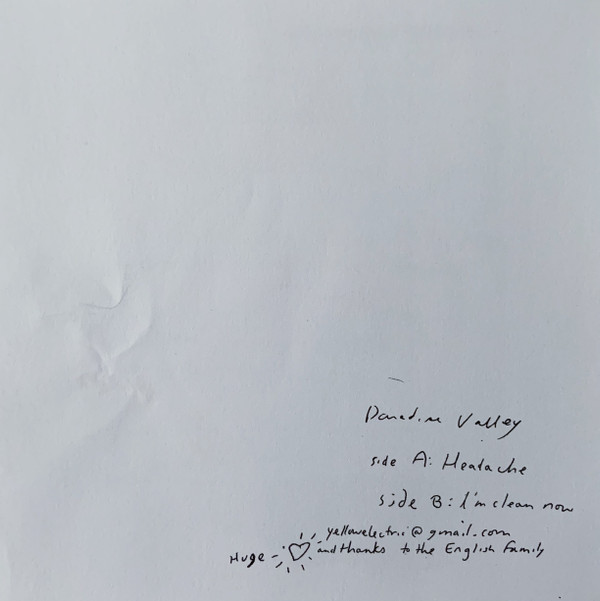 Paradise Valley
side A: Headache
side B: I'm clean now
yellowelectric@gmail.com
Huge ♡ and thanks to the English family